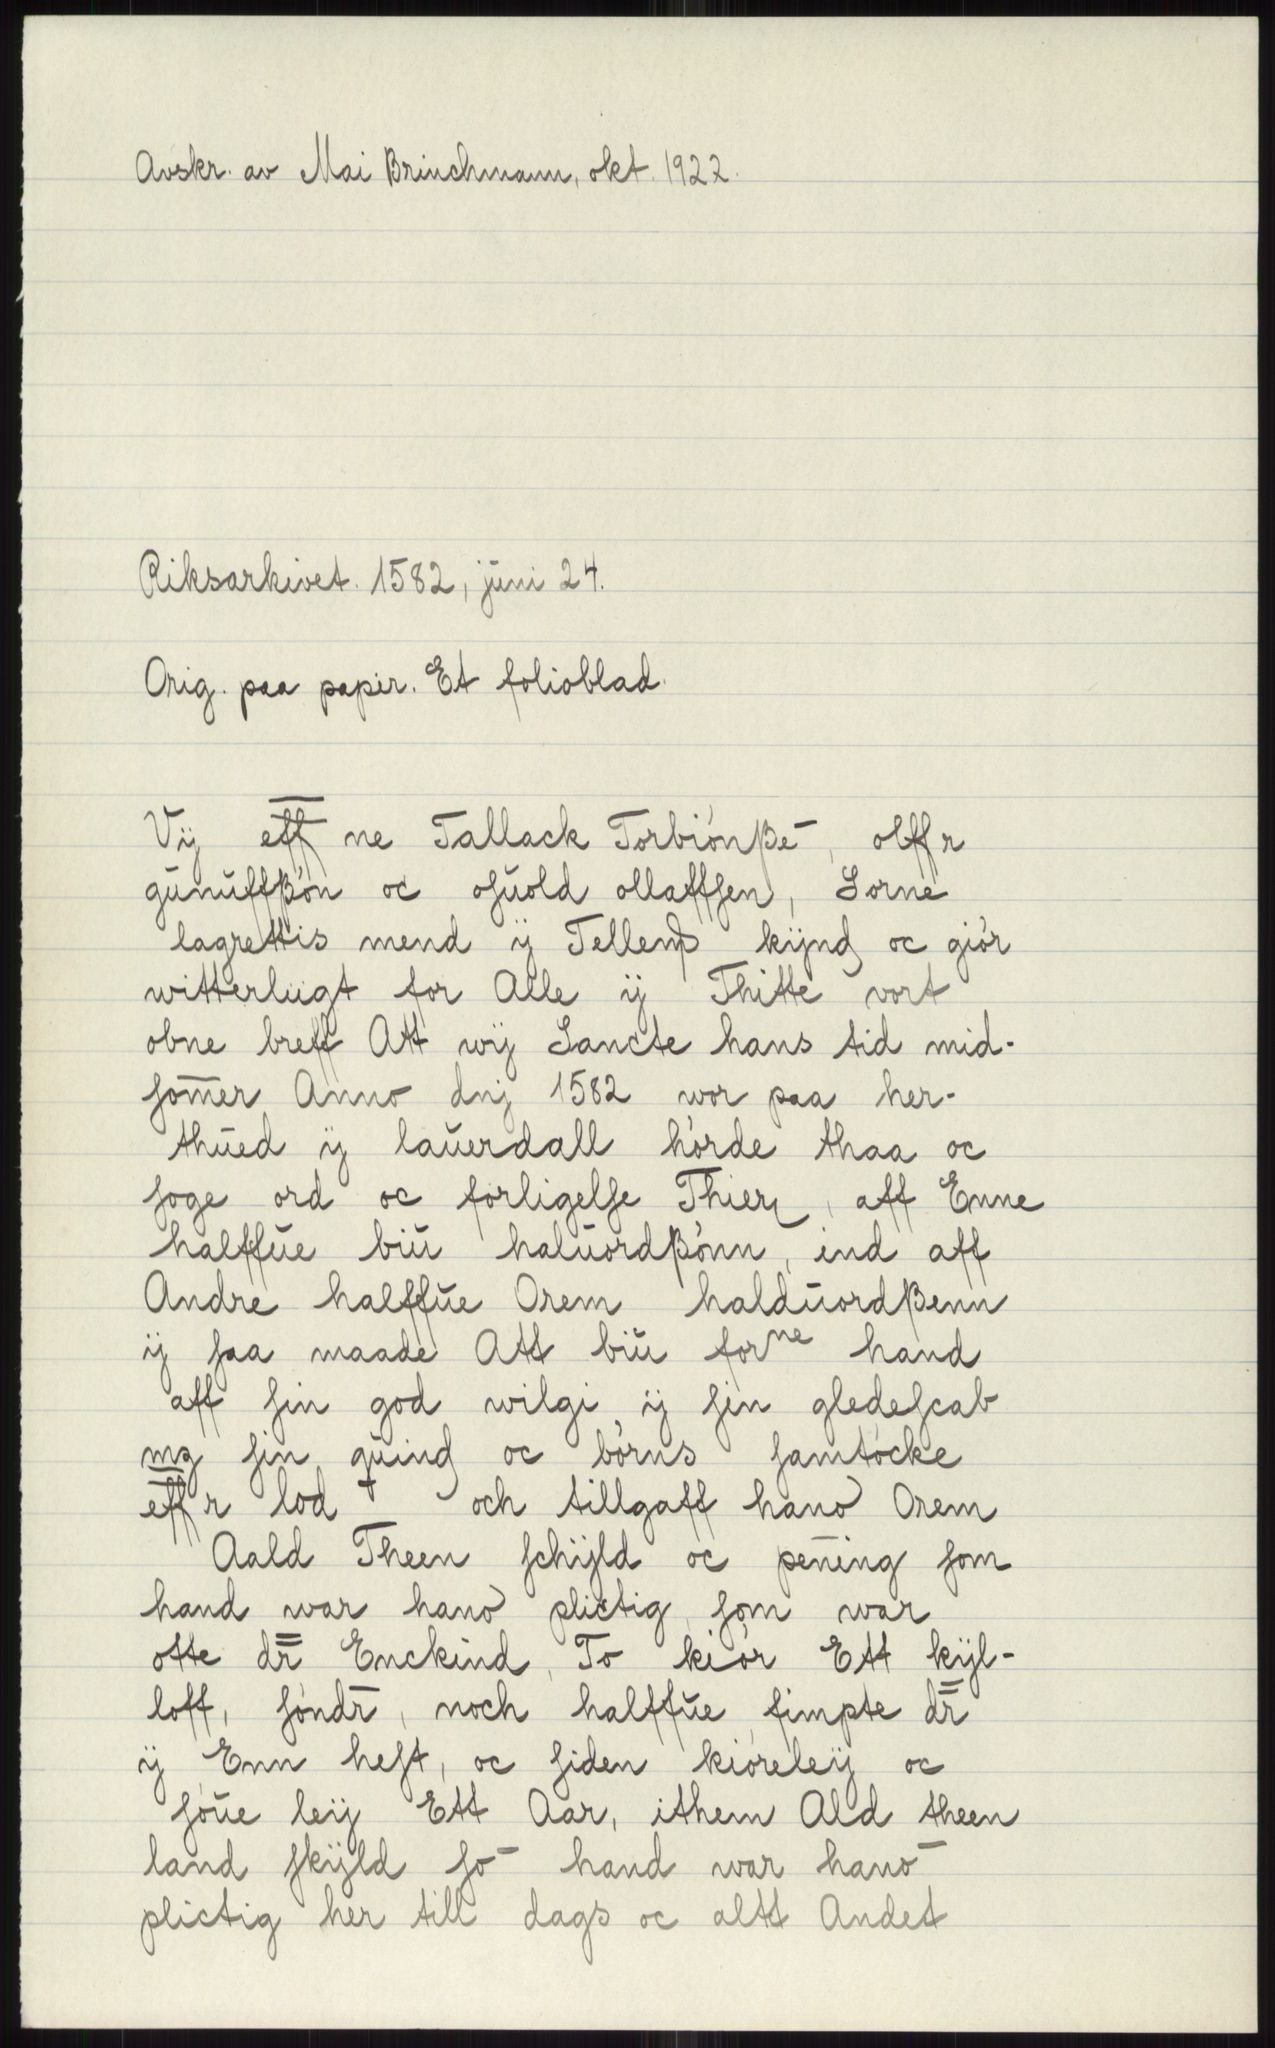 Avskr. av Mai Brinchmann, okt. 1922.
Riksarkivet. 1582, juni 24.
Orig. paa papir. Et folioblad.
Vij eff̄ ne Tallack Torbiónße̅, olffr
gŭnŭffßón oc osŭold ollaffsen, Sorne
lagrettis mend ij Tellemꝭ kijnd oc giór
witterlŭgt for Alle ij Thitte vort
obne breff Att wij Sancte hans tid mid-
som̅er Anno dnj 1582 wor paa her-
thŭed ij laŭerdall hórde thaa oc
soge ord oc forligelse Thier, aff Enne
halffŭe biŭ halŭordßónn, ind aff
Andre halffŭe Orem haldŭordßenn
ij saa maade Att biŭ forne hand
aff sin god wilgi ij sin gledescab
mꝫ sin qŭind oc bórns samtócke
eff̄r lod † och tillgaff hano Orem
Aald Theen schijld oc pen̅ing som
hand war hano plictig som war
otte dr̅ Enckind, To kiór Ett kijl-
loff, sóndr̅, noch halffŭe fimpte dr̅
ij Enn hest, oc siden kióreleij oc
sóŭe leij Ett Aar, ithem Ald theen
land skijld so̅ hand war hano
plictig her till dags oc altt Andet